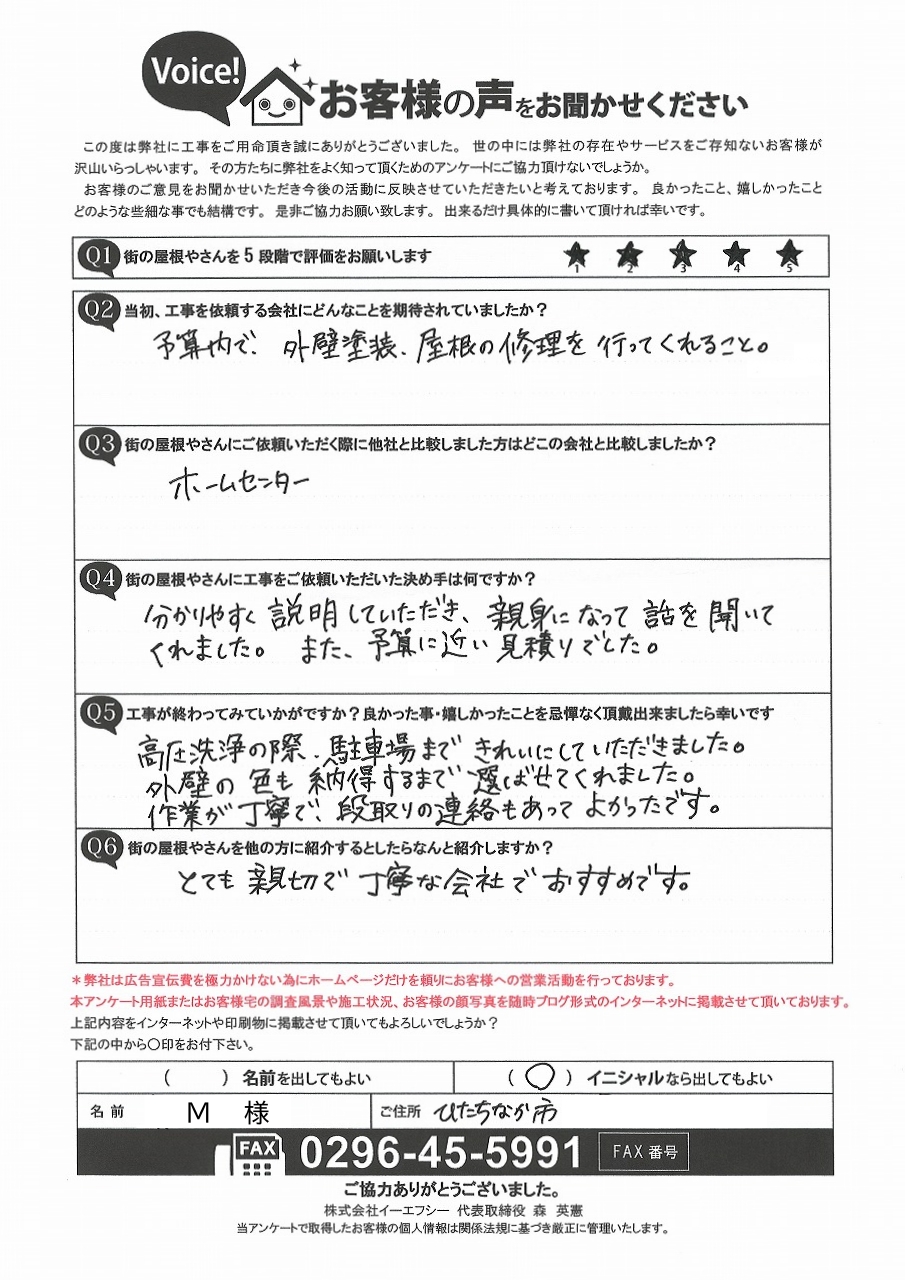 Voice!
お客様の声をお聞かせください
この度は弊社に工事をご用命頂き誠にありがとうございました。 世の中には弊社の存在やサービスをご存知ないお客様が
沢山いらっしゃいます。 その方たちに弊社をよく知って頂くためのアンケートにご協力頂けないでしょうか。
お客様のご意見をお聞かせいただき今後の活動に反映させていただきたいと考えております。 良かったこと、嬉しかったこと
どのような些細な事でも結構です。 是非ご協力お願い致します。 出来るだけ具体的に書いて頂ければ幸いです。
Q1 街の屋根やさんを5段階で評価をお願いします ★ ★ ★ ★ ★
1 2 3 4 5
Q2 当初、工事を依頼する会社にどんなことを期待されていましたか？
予算内で、外壁塗装、屋根の修理を行ってくれること。
Q3 街の屋根やさんにご依頼いただく際に他社と比較しました方はどこの会社と比較しましたか？
ホームセンター
Q4 街の屋根やさんに工事をご依頼いただいた決め手は何ですか？
分かりやすく説明していただき、親身になって話を聞いて
くれました。 また、予算に近い見積りでした。
Q5 工事が終わってみていかがですか？良かった事・嬉しかったことを忌憚なく頂戴出来ましたら幸いです
高圧洗浄の際、駐車場まできれいにしていただきました。
外壁の色も納得するまで選ばせてくれました。
作業が丁寧で、段取りの連絡もあってよかったです。
Q6 街の屋根やさんを他の方に紹介するとしたらなんと紹介しますか？
とても親切で丁寧な会社でおすすめです。
＊弊社は広告宣伝費を極力かけない為にホームページだけを頼りにお客様への営業活動を行っております。
本アンケート用紙またはお客様宅の調査風景や施工状況、お客様の顔写真を随時ブログ形式のインターネットに掲載させて頂いております。
上記内容をインターネットや印刷物に掲載させて頂いてもよろしいでしょうか？
下記の中から〇印をお付下さい。
（　　）名前を出してもよい （〇）イニシャルなら出してもよい
名前 M 様 ご住所 ひたちなか市
FAX 0296-45-5991 FAX 番号
ご協力ありがとうございました。
株式会社イーエフシー 代表取締役 森 英憲
当アンケートで取得したお客様の個人情報は関係法規に基づき厳正に管理いたします。